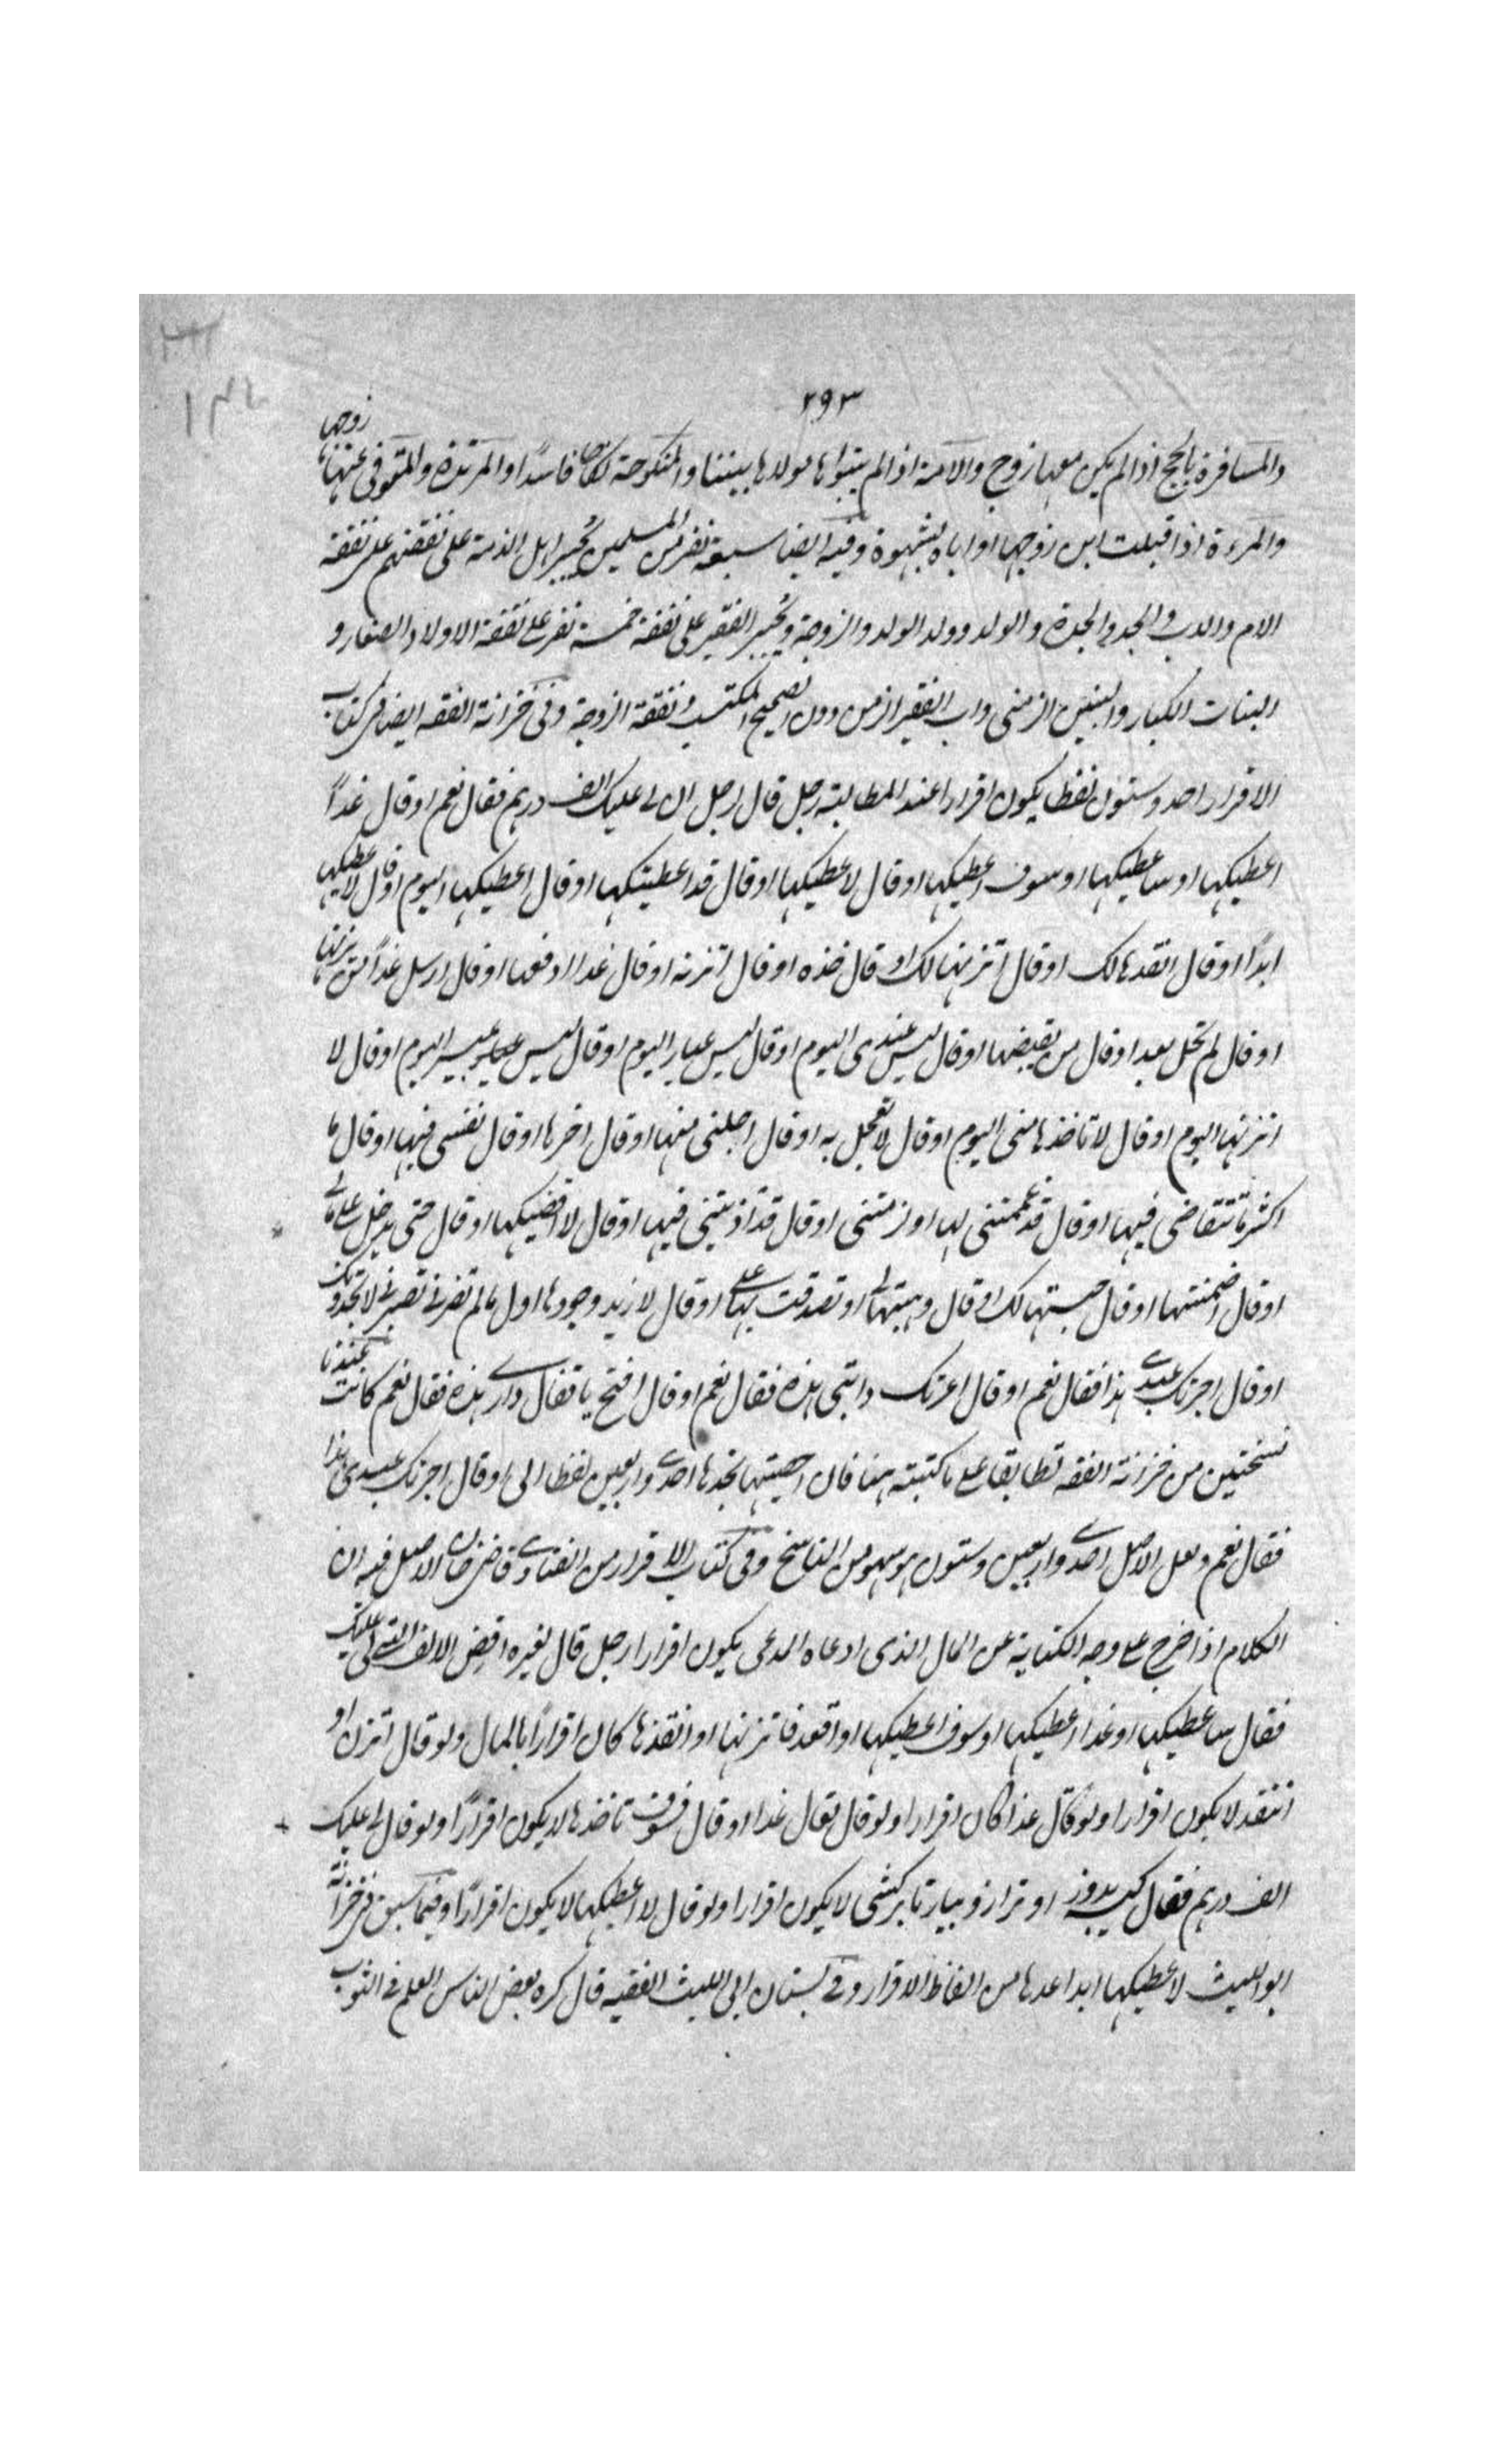 ٢٩٣
والمسافرة بالحج اذا لم يكن معها زوج والامة اذا لم يبوأها مولاها بيتنا والمنكوحة نكاحا فاسدًا والمرتدة والمتوفى عنها زوجها
والمرءة اذا قبلت ابن زوجها او اباه بشهوة وفيه ايضا سبعة نفر من المسلمين يجبر اهل الذمة على نفقتهم على نفقة
الام والاب والجد والجدة والولد وولد الولد والزوجة ويجبر الفقير على نفقة خمسة نفر على نفقة الاولاد الصغار و
البنات الكبار والبنين الزمنى واب الفقير الزمن دون الصحيح المكتسب ونفقة الزوجة وفى خزانة الفقه ايضا فى كتاب
الاقرار احد وستون لفظا يكون اقرارا عند المطالبة رجل قال لرجل ان لى عليك الف درهم فقال نعم او قال غدًا
اعطيكها او ساعطيكها او سوف اعطيكها او قال لا اعطيكها او قال قد اعطيتكها او قال اعطيكها اليوم او قال لا اعطيكها
ابدًا او قال انقدها لك او قال اتزنها لك او قال خذه او قال اتزنه او قال غدا ادفعها او قال ارسل غدًا من يزنها
او قال لم تحل بعد او قال من يقبضها او قال ليس عندى اليوم او قال ليس عيار اليوم او قال ليس اليوم او قال لا
اتزنها اليوم او قال لا تاخذها منى اليوم او قال لا تعجل به او قال اجلنى منها او قال اخرها او قال نفسى فيها او قال ما
اكثر ما تتقاضى فيها او قال قد غممتنى لها او لزمتنى او قال قد اذيتنى فيها او قال لا اقضيكها او قال حتى يدخل على مالى
او قال اضمنتها او قال حسبتها لك او قال وهبتها لى او تصدقت بها على او قال لا زيد وجودها اول ما لم تضرنى
او قال اجرتك عبدى هذا فقال نعم او قال اعرتك دابتى هذه فقال نعم او قال افتح يا قفال دارى هذه فقال نعم كانت عندنا
نسختين من خزانة الفقه تطابقا على ما كتبته هنا فان احصيتها تجدها احدى واربعين لفظا الى او قال اجرتك عبدى هذا
فقال نعم ولعل الاصل احدى واربعين وستون هو سهو من الناسخ وفى كتاب الاقرار من الفتاوى قاضى خان الاصل فيه ان
الكلام اذا خرج على وجه الكناية عن المال الذى ادعاه المدعى يكون اقرارا رجل قال لغيره اقض الالف التى لى عليك
فقال ساعطيكها او غدا اعطيكها او سوف اعطيكها او اقعد فاتزنها او انقدها كان اقرارًا بالمال ولو قال اتزن او
انتقد لا يكون اقرارا ولو قال غدا كان اقرارا ولو قال تعال غدا او قال فسوف تاخذها لا يكون اقرارًا ولو قال لى عليك
الف درهم فقال كيسه بدوز او ترازو بيار تا بر كشى لا يكون اقرارا ولو قال لا اعطيكها لا يكون اقرارًا وفيما سبق فى خزانة
ابو الليث لا اعطيكها ابدا عدها من الفاظ الاقرار وفى بستان ابى الليث الفقيه قال كره بعض الناس العلم فى الثوب